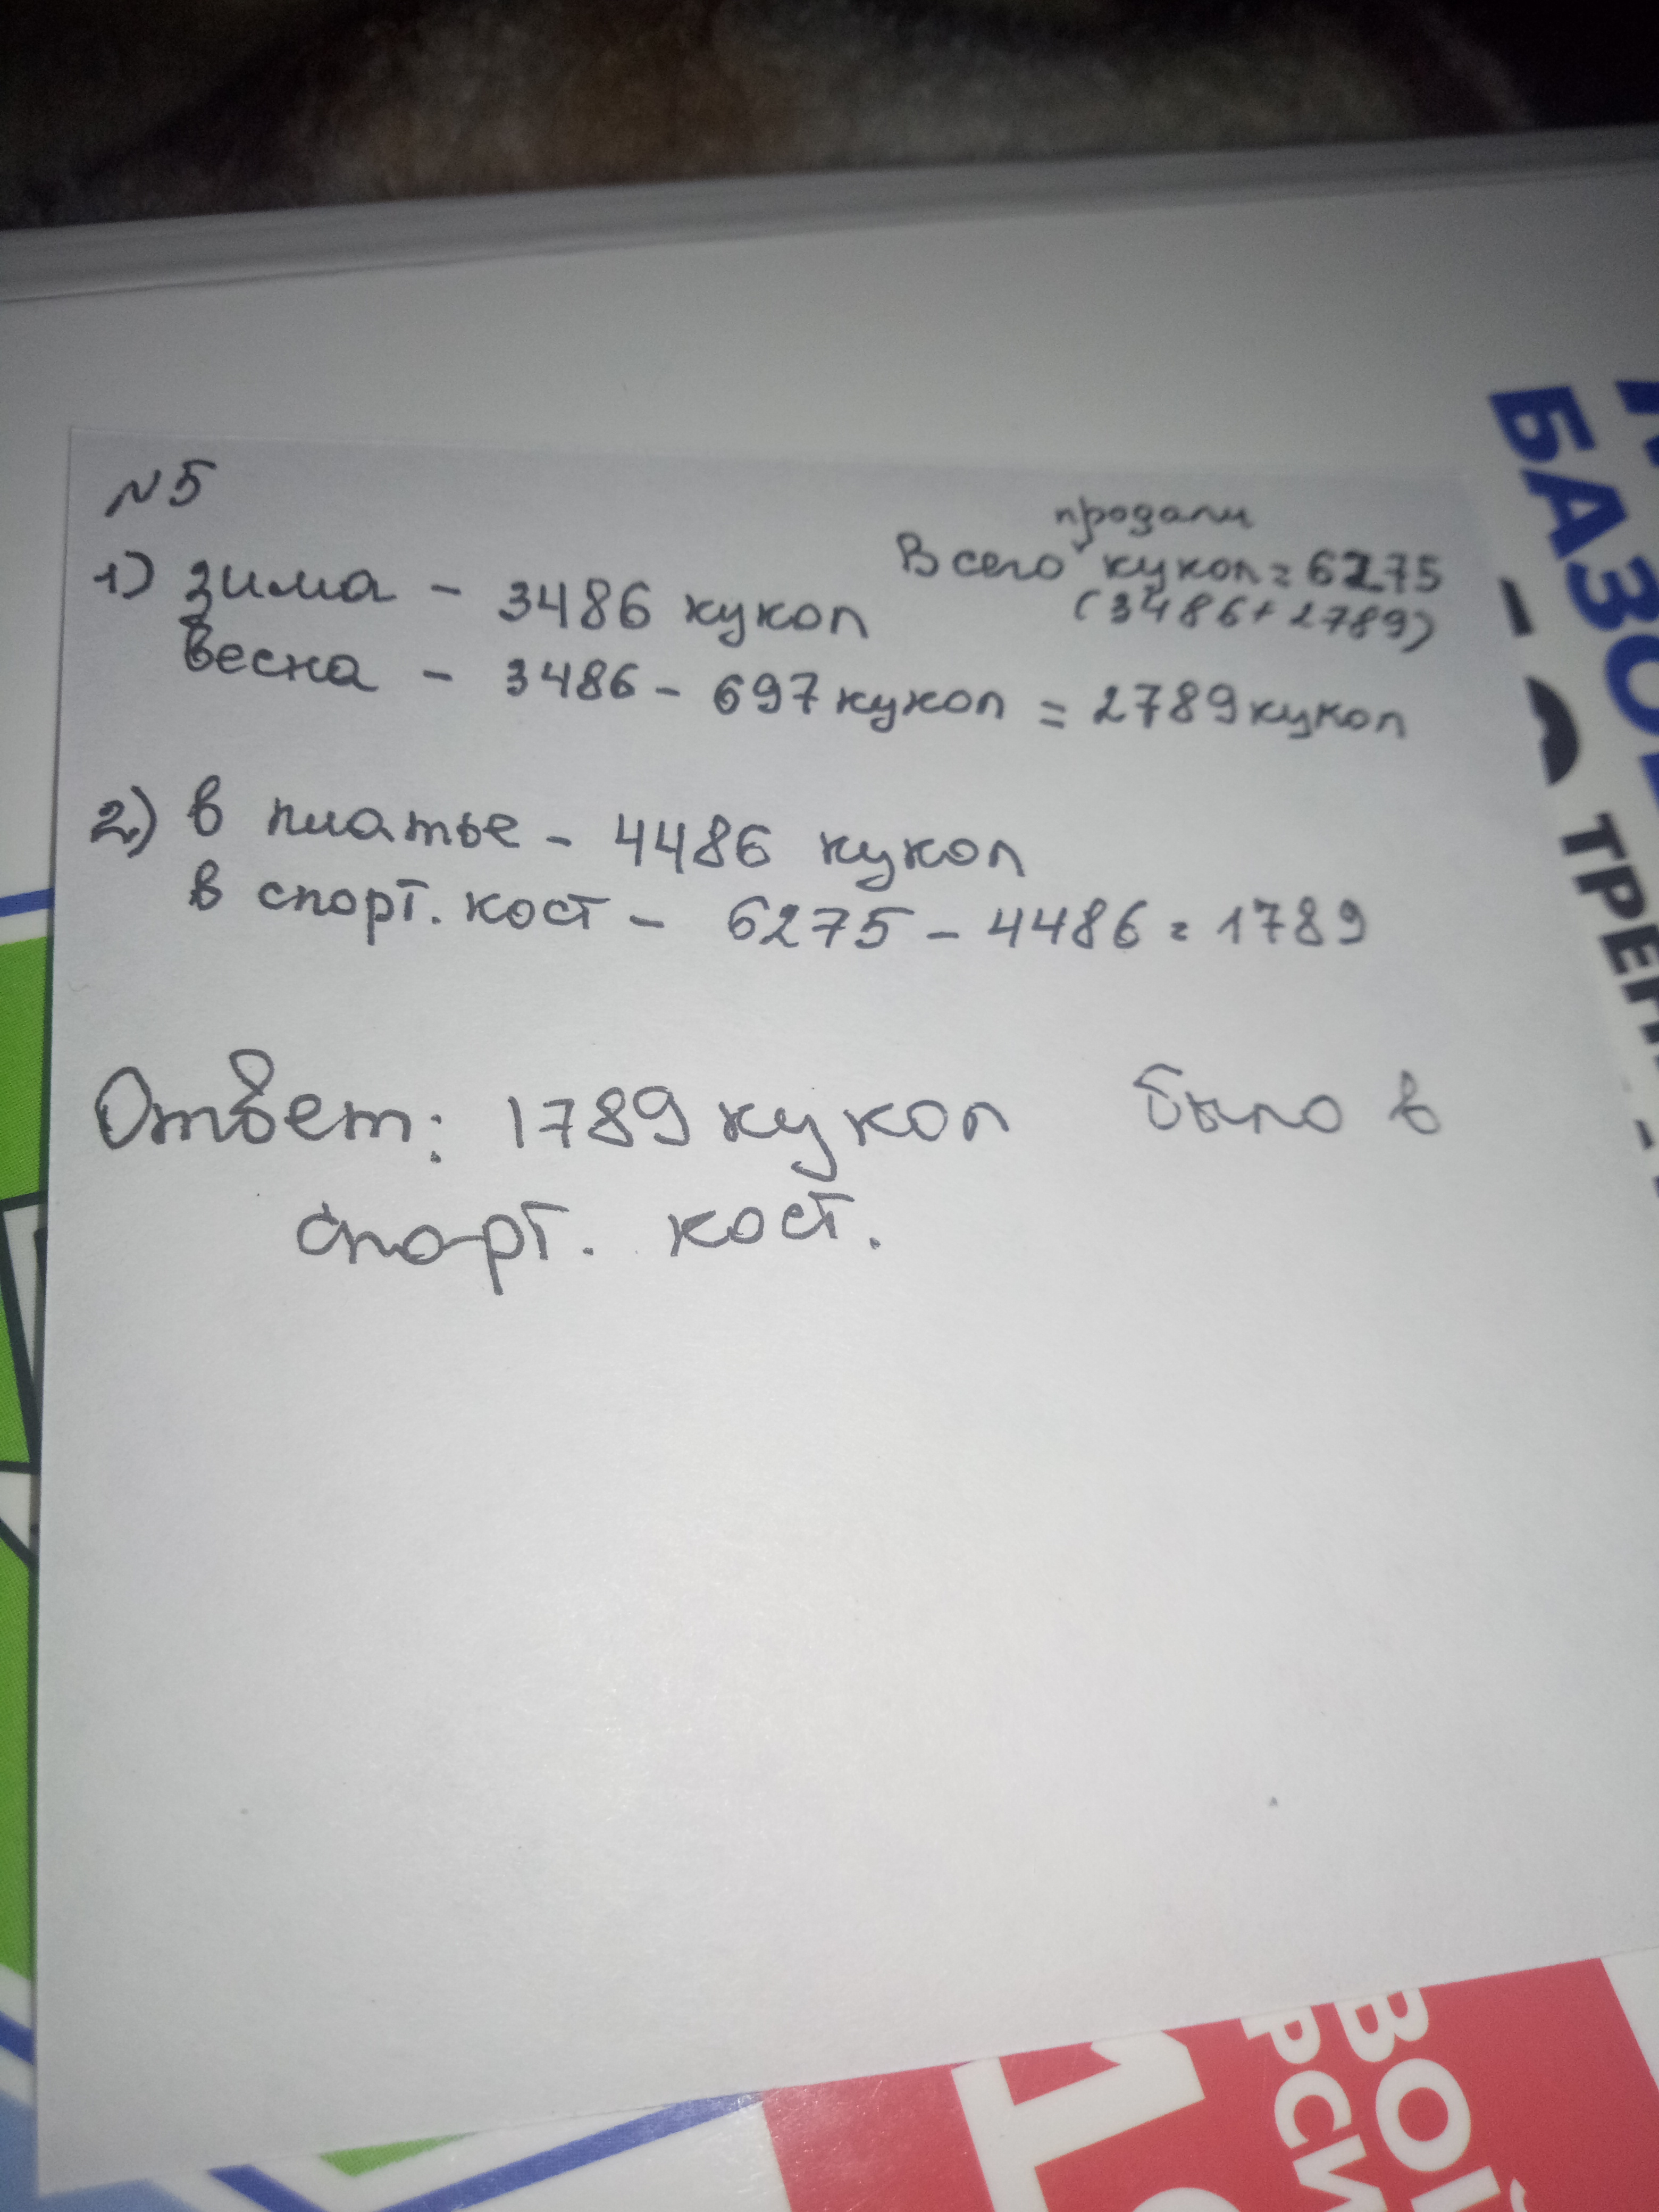 №5
1) зима - 3486 кукол
продали
Всего кукол = 6275
(3486+2789)
весна - 3486 - 697 кукол = 2789 кукол
2) в платье - 4486 кукол
в спорт. кост - 6275 - 4486 = 1789
Ответ: 1789 кукол было в
спорт. кост.
БАЗО
ТРЕН
ВОЙ
РСИ